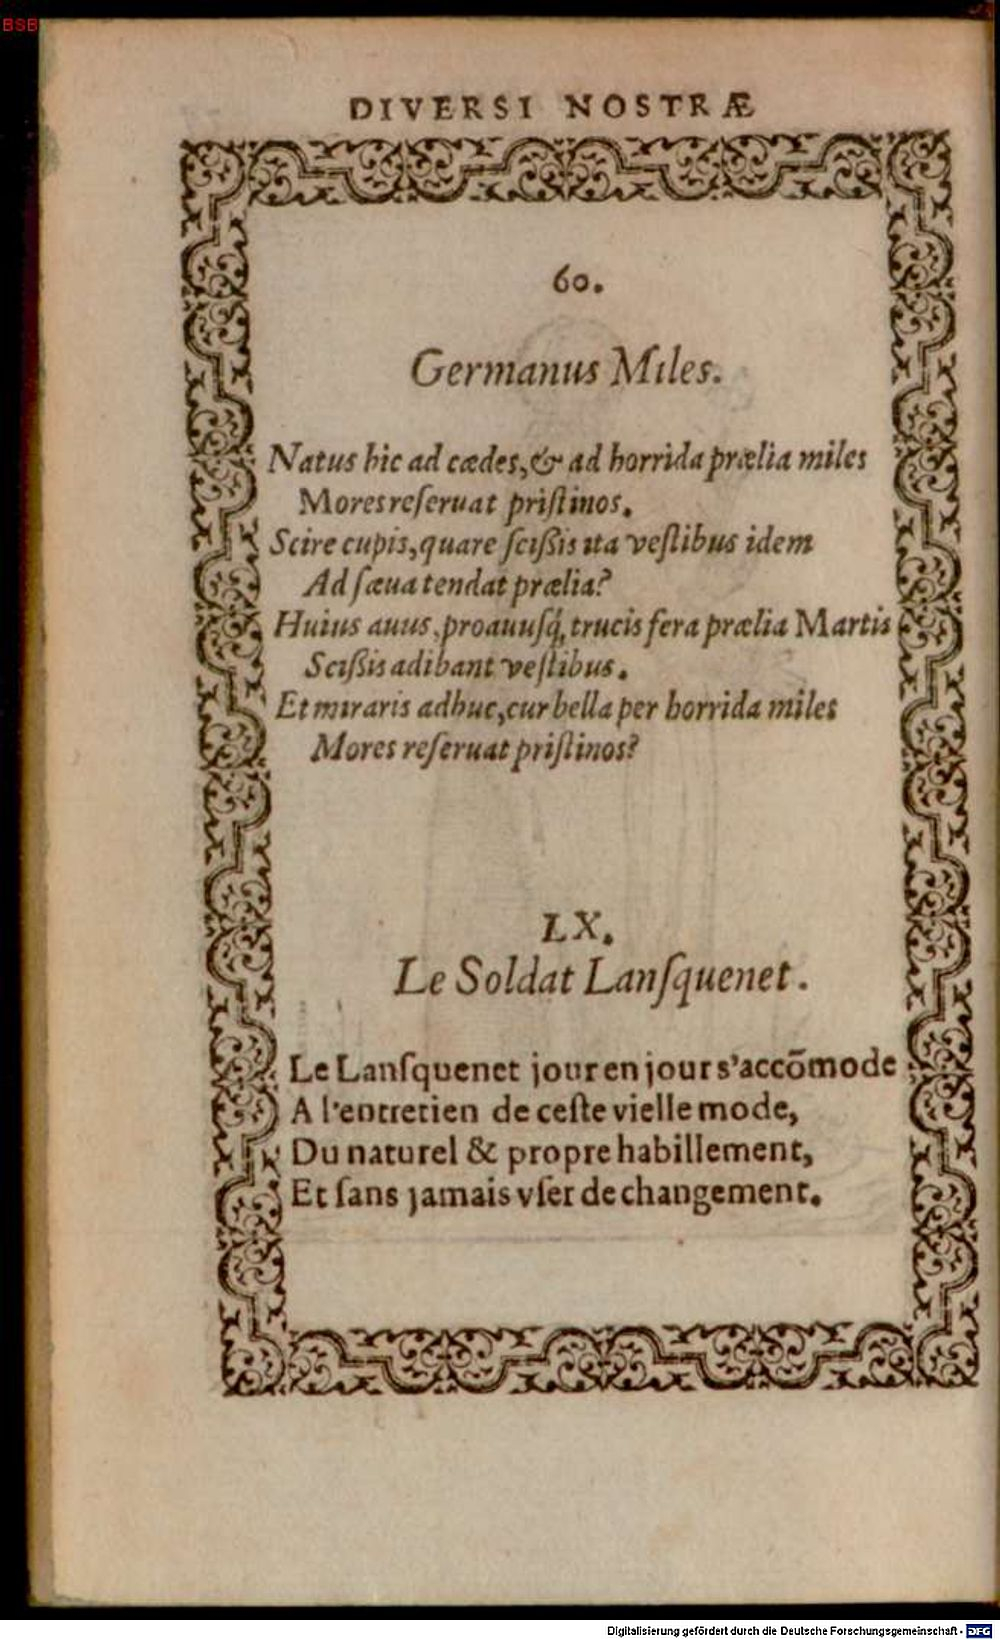 BSB
DIVERSI NOSTRÆ
60.
Germanus Miles.
Natus hic ad cædes, & ad horrida prælia miles
Mores reſeruat priſtinos.
Scire cupis, quare ſciſsis ita veſtibus idem
Ad ſæua tendat prælia?
Huius auus, proauuſq́, trucis fera prælia Martis
Sciſsis adibant veſtibus.
Et miraris adhuc, cur bella per horrida miles
Mores reſeruat priſtinos?
LX.
Le Soldat Lanſquenet.
Le Lanſquenet jour en jour s'accõmode
A l'entretien de ceſte vielle mode,
Du naturel & propre habillement,
Et ſans jamais vſer de changement.
Digitalisierung gefördert durch die Deutsche Forschungsgemeinschaft - DFG